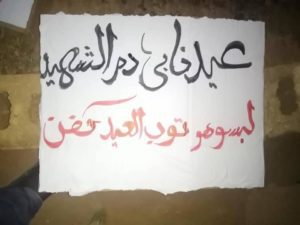 عيدنا بي دم الشهيد
لبسوهو توب العيد كفن